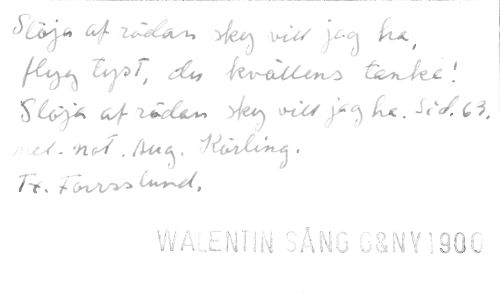 Slöja af rödan sky vill jag ha,
flyg tyst, du kvällens tanke!
Slöja af rödan sky vill jag ha. Sid. 63.
mel. not. Aug. Körling.
Tx. Forsslund.
WALENTIN SÅNG G&NY 1900